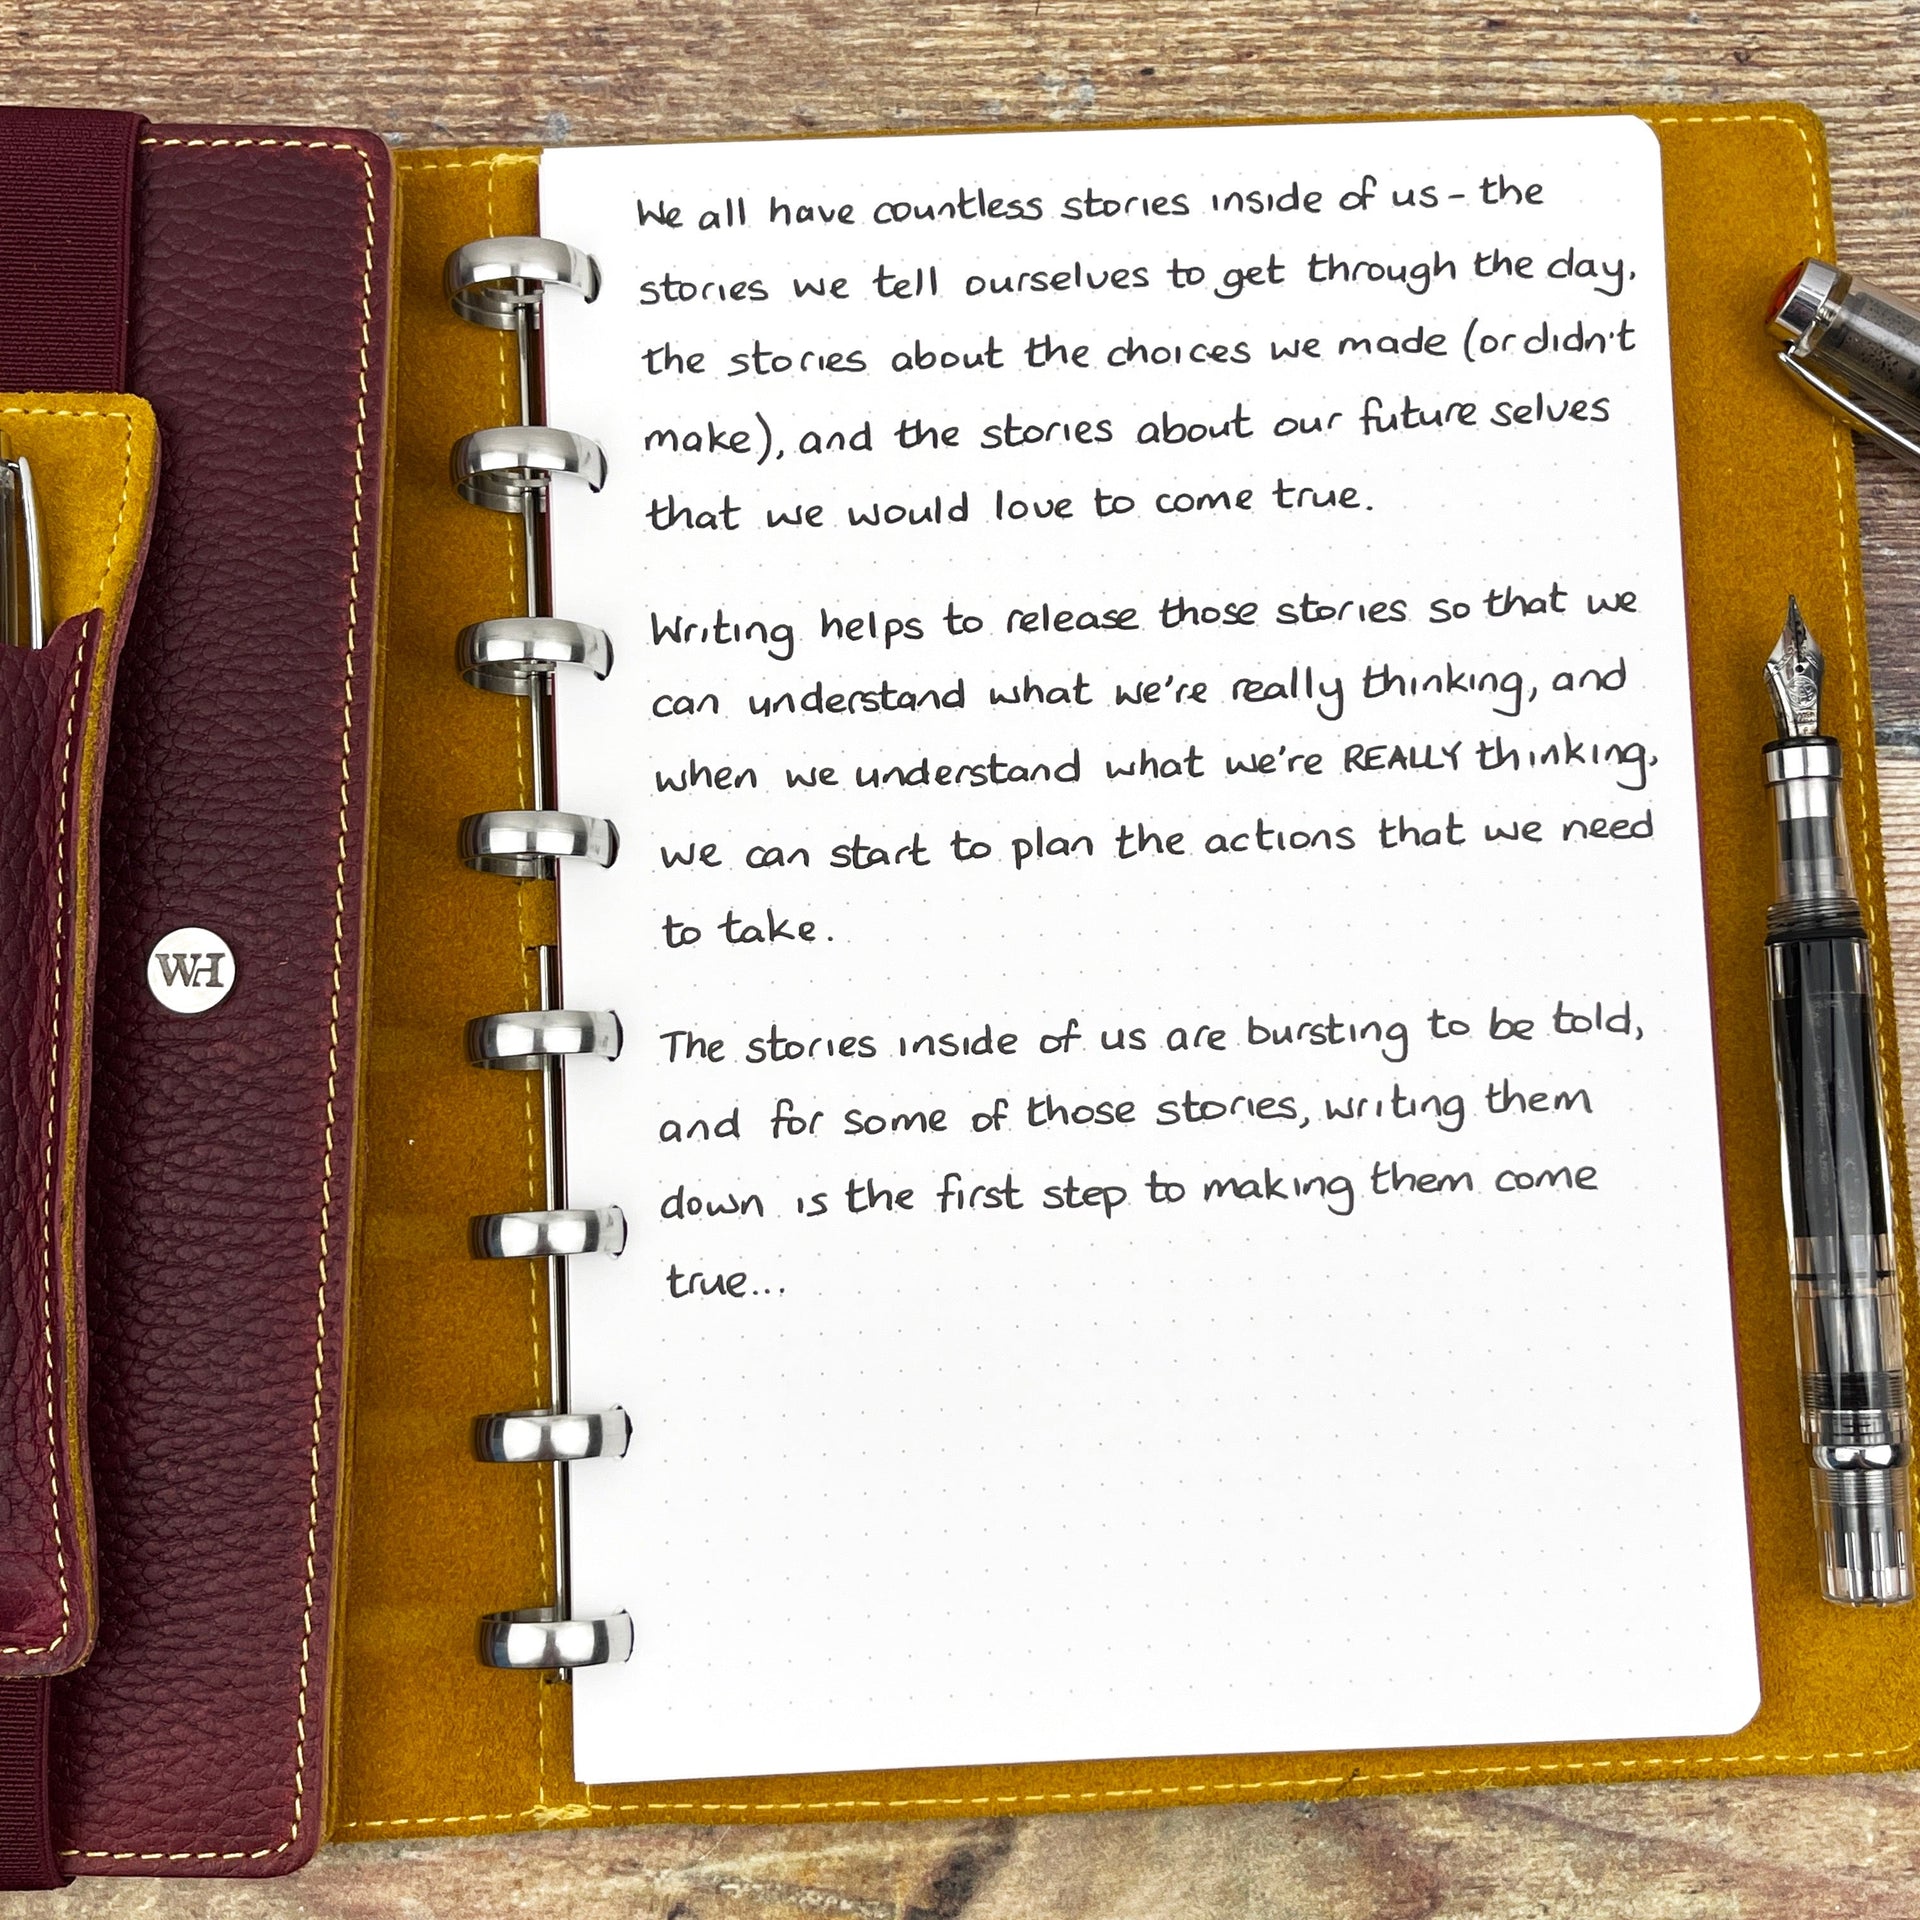 We all have countless stories inside of us - the
stories we tell ourselves to get through the day,
the stories about the choices we made (or didn't
make), and the stories about our future selves
that we would love to come true.
Writing helps to release those stories so that we
can understand what we're really thinking, and
when we understand what we're REALLY thinking,
we can start to plan the actions that we need
to take.
The stories inside of us are bursting to be told,
and for some of those stories, writing them
down is the first step to making them come
true...
WH